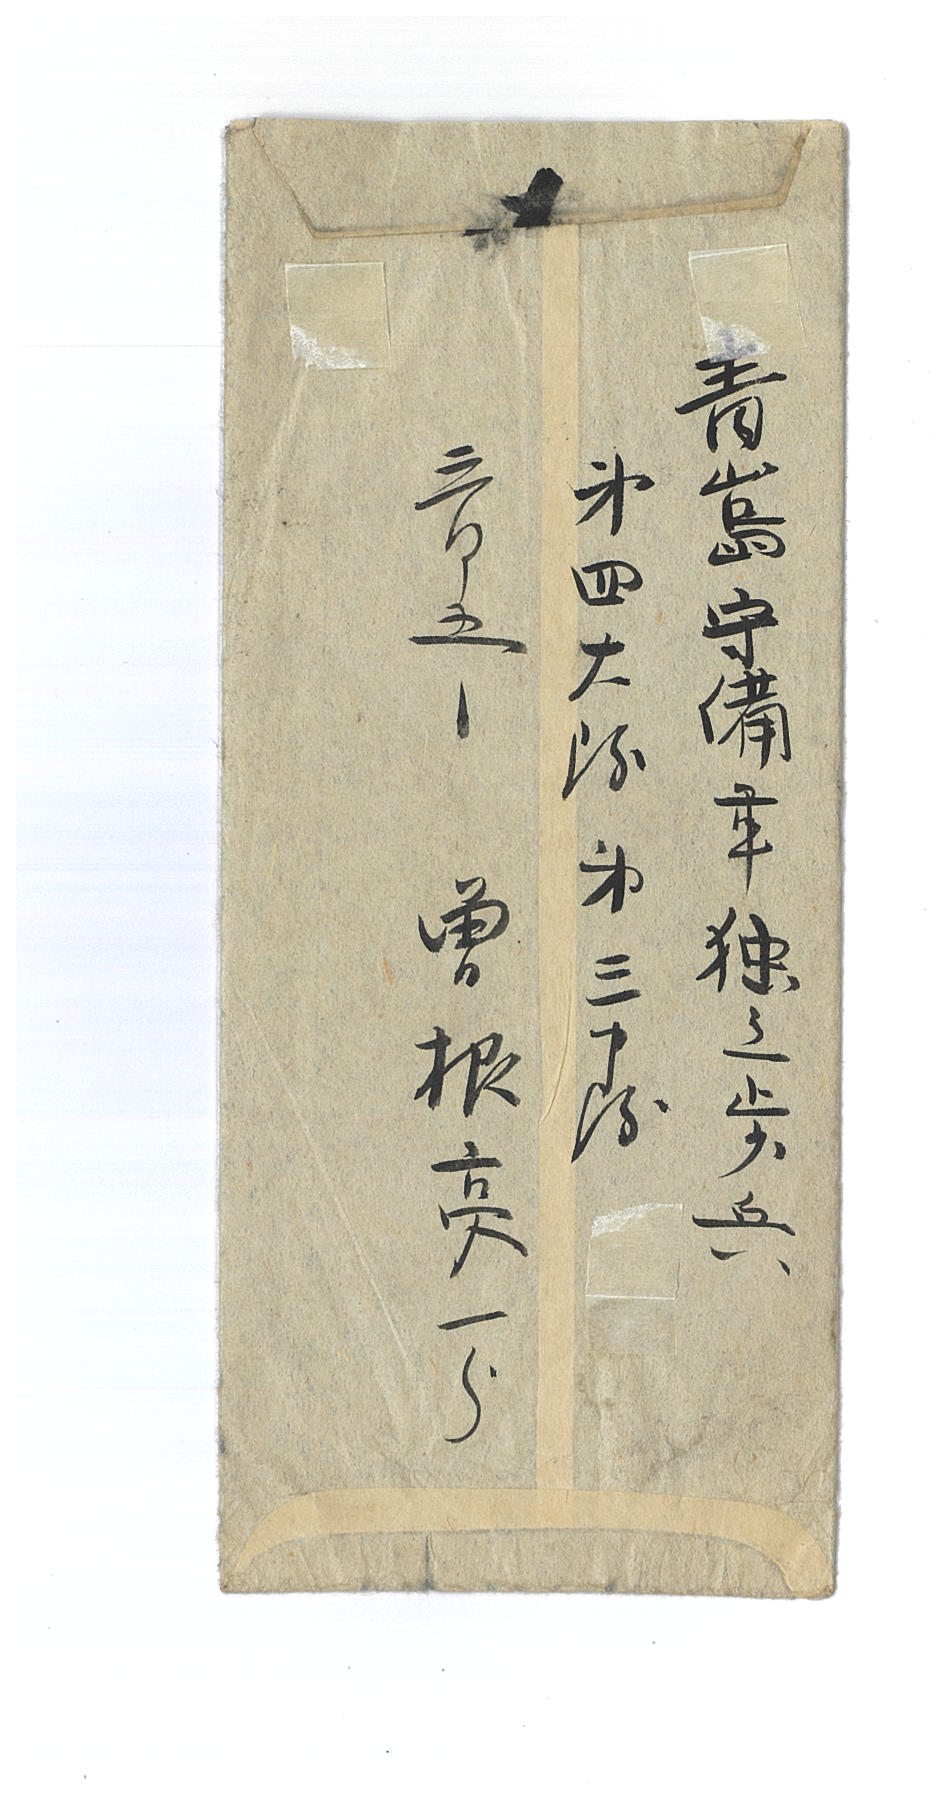 青島守備軍独立歩兵
第四大隊第三中隊
三月五日
曽根亮一